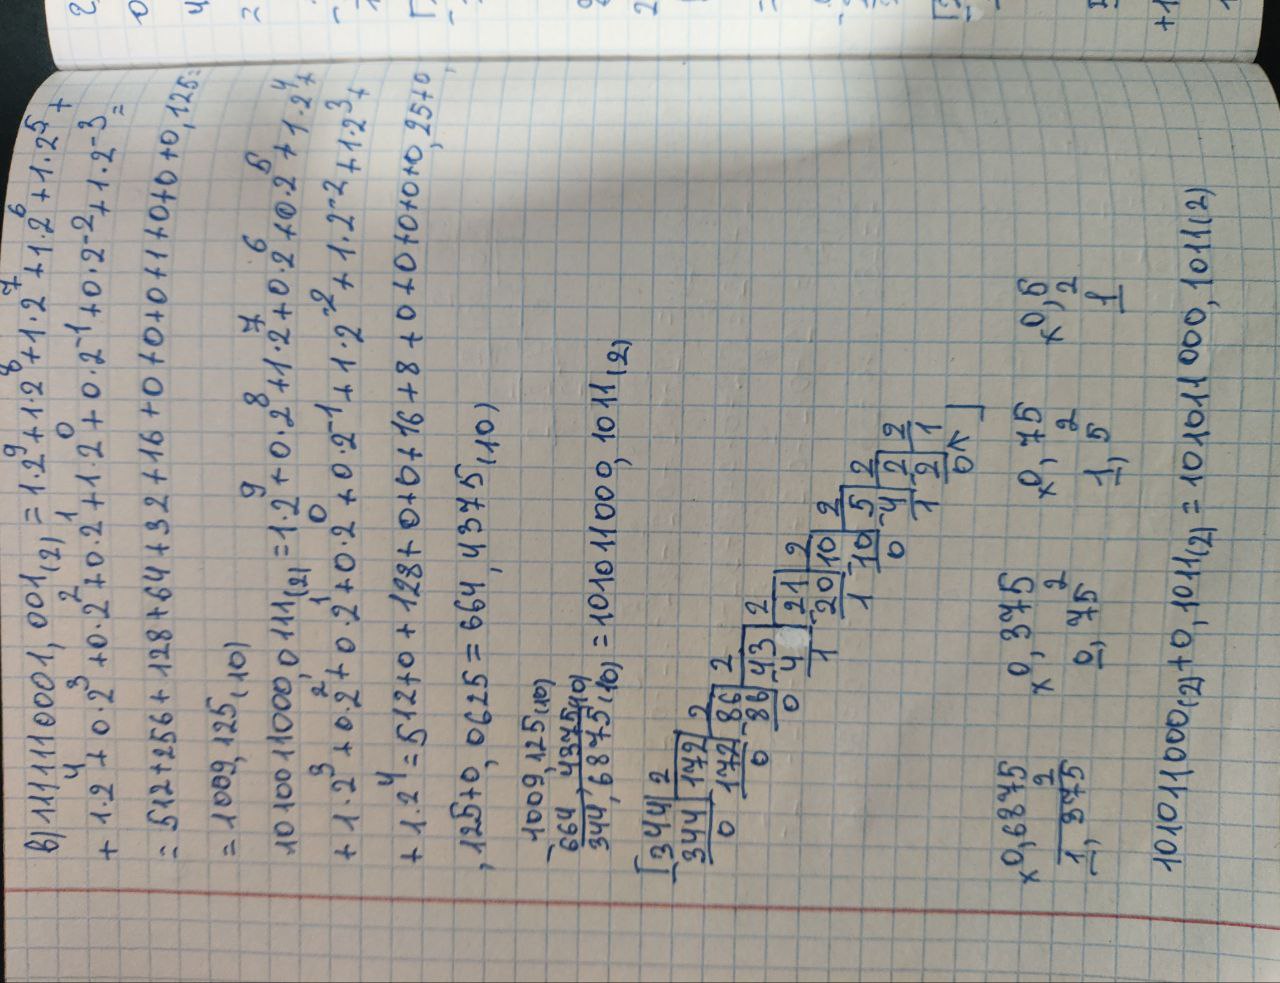 в) 1111110001,001(2) = 1·2⁹+1·2⁸+1·2⁷+1·2⁶+1·2⁵+
+1·2⁴+0·2³+0·2²+0·2¹+1·2⁰+0·2⁻¹+0·2⁻²+1·2⁻³=
=512+256+128+64+32+16+0+0+0+1+0+0+0,125=
=1009,125(10)
1010011000,0111(2) =1·2⁹+0·2⁸+1·2⁷+0·2⁶+0·2⁵+1·2⁴+
+1·2³+0·2²+0·2¹+0·2⁰+0·2⁻¹+1·2⁻²+1·2⁻²+1·2³+
+1·2⁴=512+0+128+0+0+16+8+0+0+0+0+0,25+0,
,125+0,0625=664,4375(10)
-1009,125(10)
664,4375(10)
344,6875(10) =101011000,1011(2)
[-344 2
344 172 2
0 -172 86 2
0 -86 43 2
0 -4 21 2
1 -20 10 2
1 -10 5 2
0 -4 2 2
1 -2 1
0↖ ]
×0,6875 ×0,375 ×0,75 ×0,5
2 2 2 2
1,375 0,75 1,5 1
101011000(2)+0,1011(2)=101011000,1011(2)